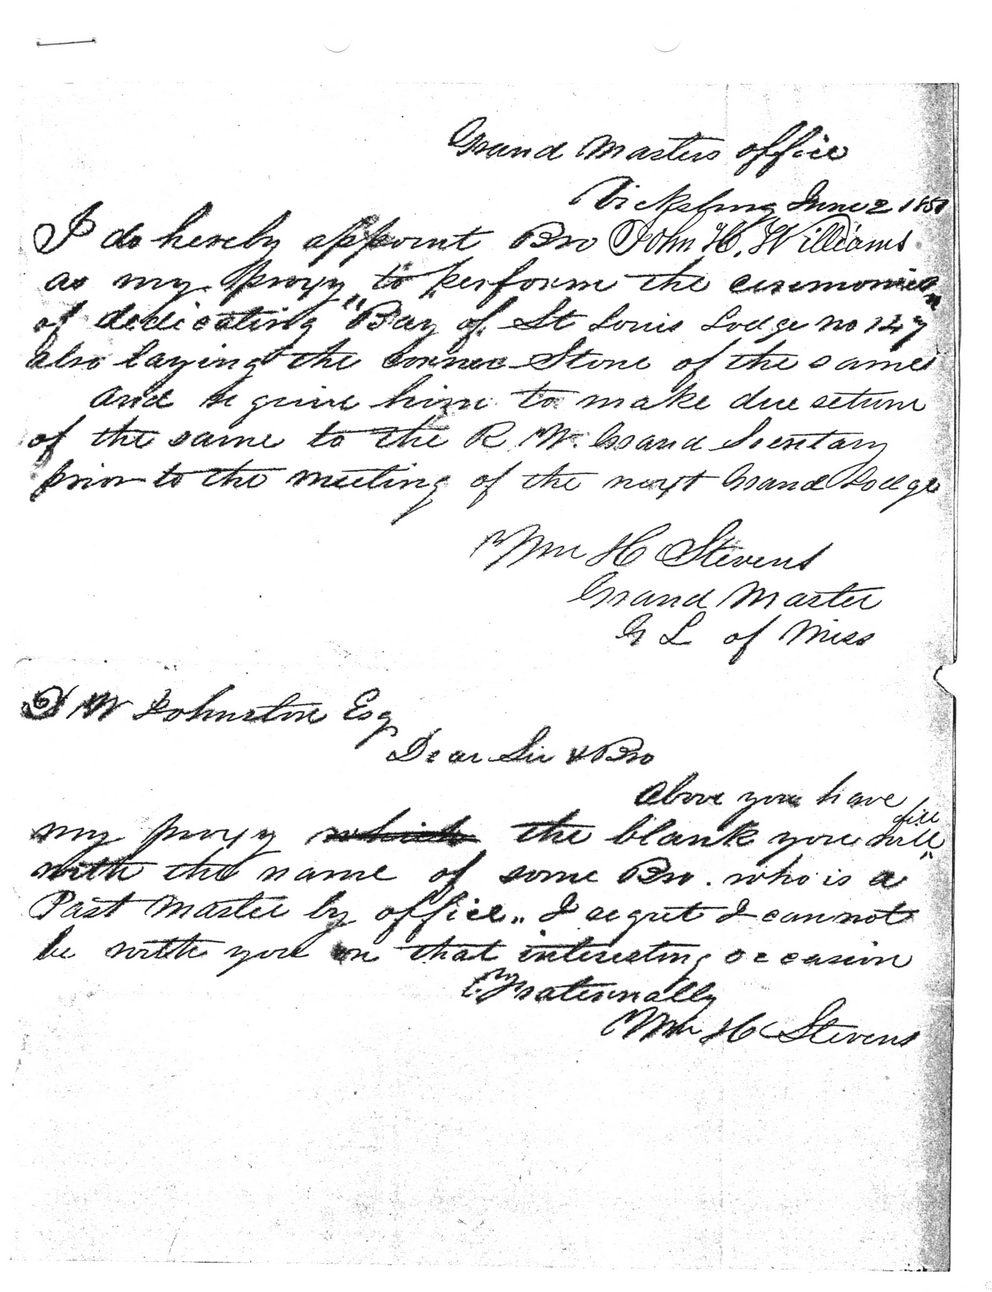 Grand Masters office
Vicksburg June 2 185
I do hereby appoint Bro John H. Williams
as my proxy to perform the ceremonies
of dedicating "Bay of St Louis Lodge no 147"
also laying the corner Stone of the same
and require him to make due return
of the same to the R. W. Grand Secretary
prior to the meeting of the next Grand Lodge
Wm H Stevens
Grand Master
G L of Miss
W Johnston Esq
Dear Sir & Bro
Above you have
my proxy which the blank you will fill
with the name of some Bro. who is a
Past Master by office. I regret I cannot
be with you on that interesting occasion
Fraternally
Wm H Stevens